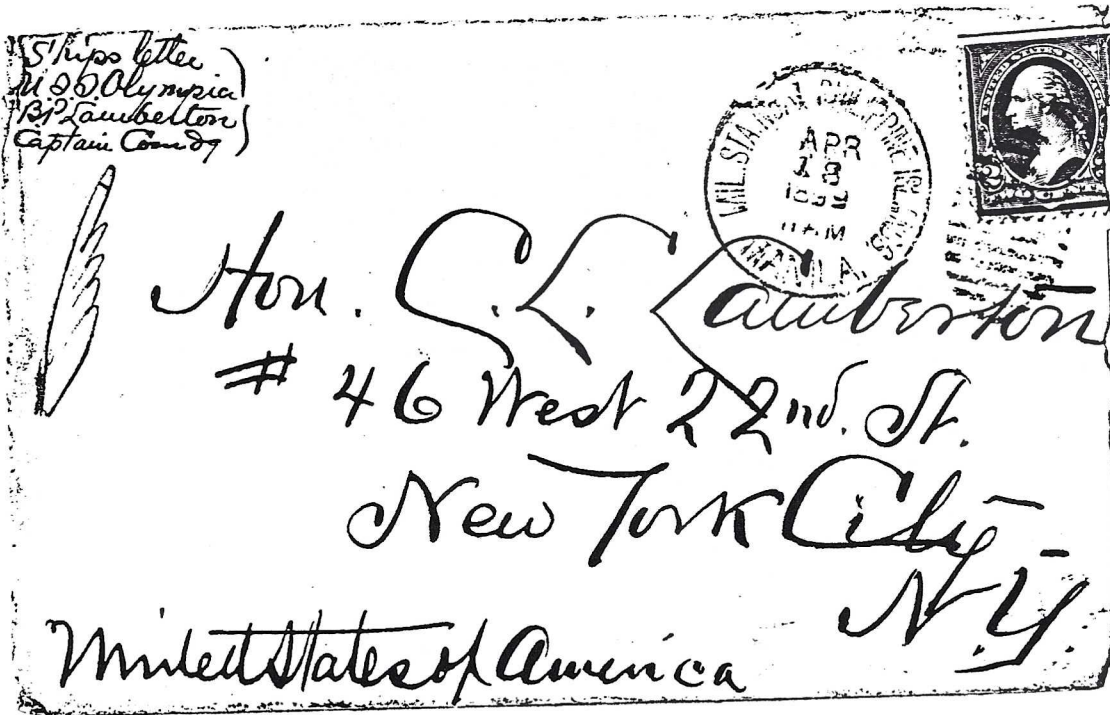 Ships letter
U.S.S. Olympia
B.P. Lamberton
Captain Comdg
MIL. STA. NO. 1 PHILIPPINE ISLANDS
APR
18
1899
11 AM
MANILA
UNITED STATES POSTAGE
Hon. C. L. Lamberton
# 46 West 22nd. St.
New York City
N.Y.
United States of America